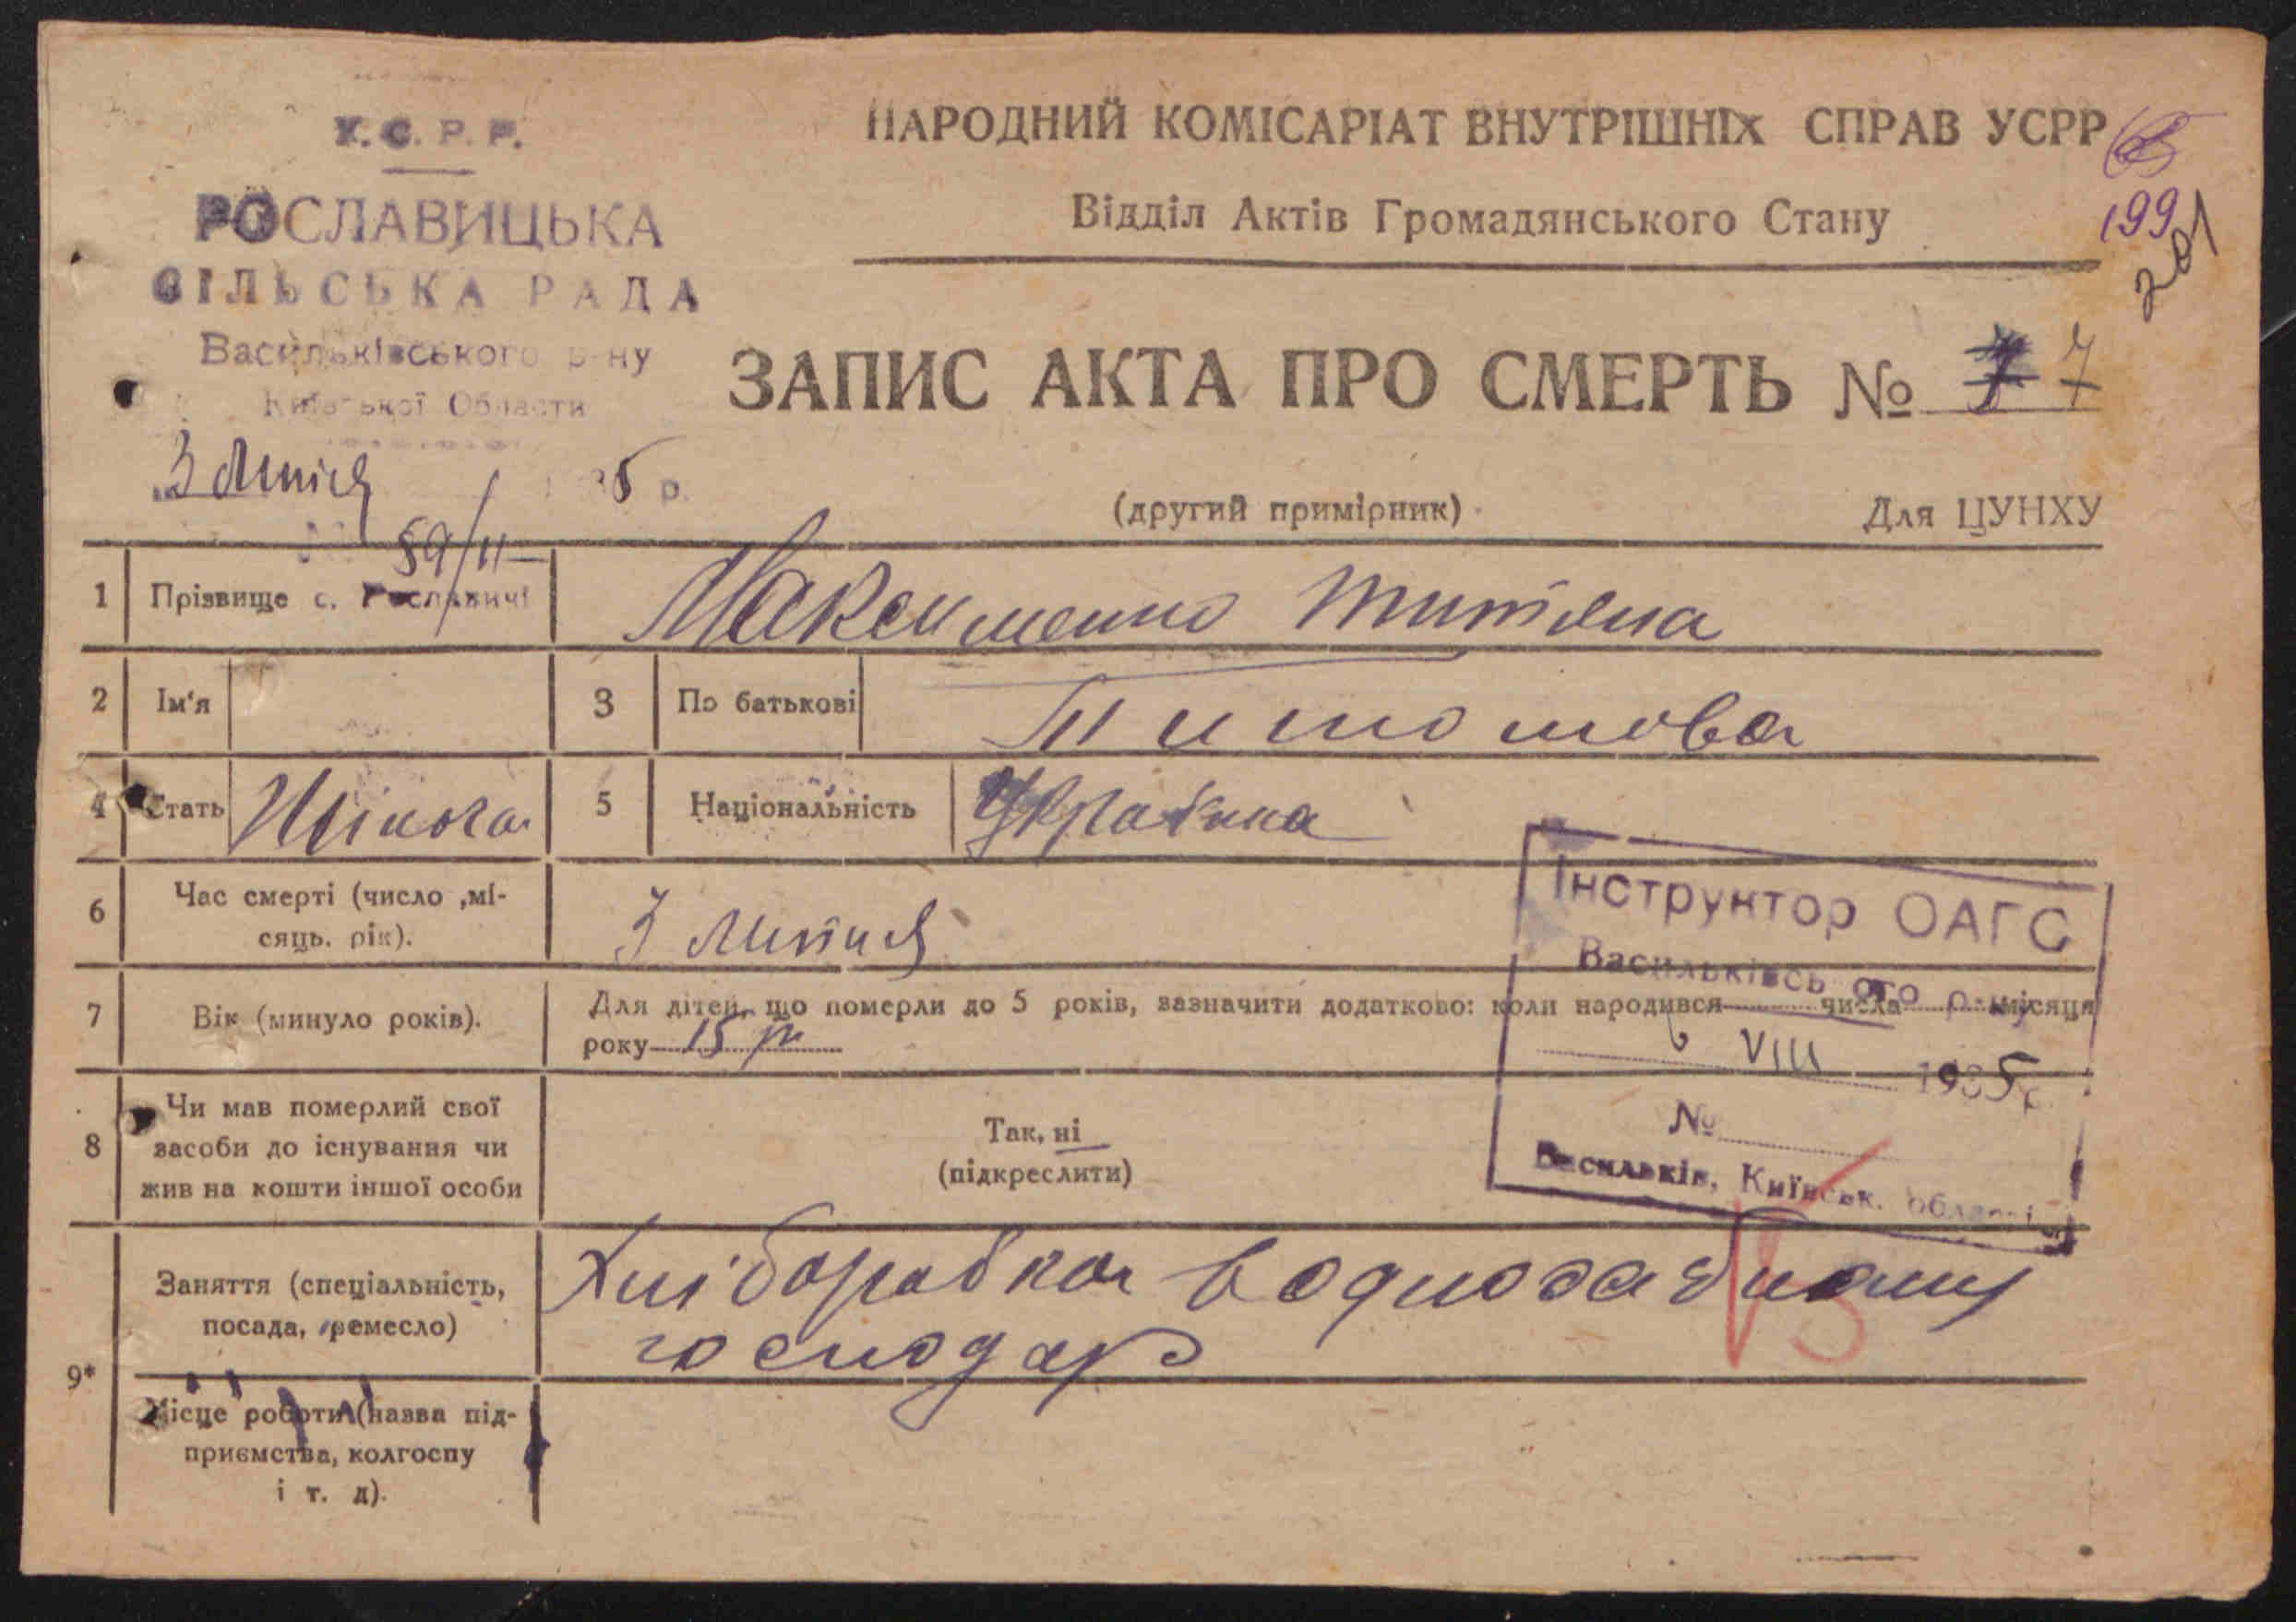 У.С.Р.Р.
РОСЛАВИЦЬКА
СІЛЬСЬКА РАДА
Васильківського р-ну
Київської Области
3 Липня 1935 р.
59/11
с. Рославичі
НАРОДНИЙ КОМІСАРІАТ ВНУТРІШНІХ СПРАВ УСРР
Відділ Актів Громадянського Стану
199
201
ЗАПИС АКТА ПРО СМЕРТЬ № 7
(другий примірник)
Для ЦУНХУ
1 Прізвище Максименко Титяна
2 Ім'я
3 По батькові Типотова
4 Стать Жінока
5 Національність Українка
6 Час смерті (число ,мі-
сяць. рік).
3 Липня
7 Вік (минуло років).
Для дітей, що померли до 5 років, зазначити додатково: коли народився числа місяця
року 15 р
8 Чи мав померлий свої
засоби до існування чи
жив на кошти іншої особи
Так, ні
(підкреслити)
Інструктор ОАГС
Васильківського р-ну
VIII 1935 р.
№
Васильків, Київськ. області
9* Заняття (спеціальність,
посада, ремесло)
Хліборобка в одноосабному
господар
Місце роботи (назва під-
приємства, колгоспу
і т. д).